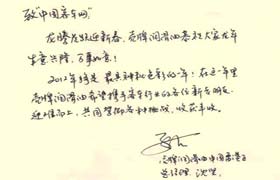 致"中国客车网"
龙腾虎跃迎新春,壳牌润滑油恭祝大家龙年
生意兴隆,万事如意!
2012年将是最具神秘色彩的一年!在这一年里
壳牌润滑油希望携手客车行业的各位新老朋友
迎难而上,共同赞御各种挑战,收获丰收。
壳牌润滑油中国香港区
总经理